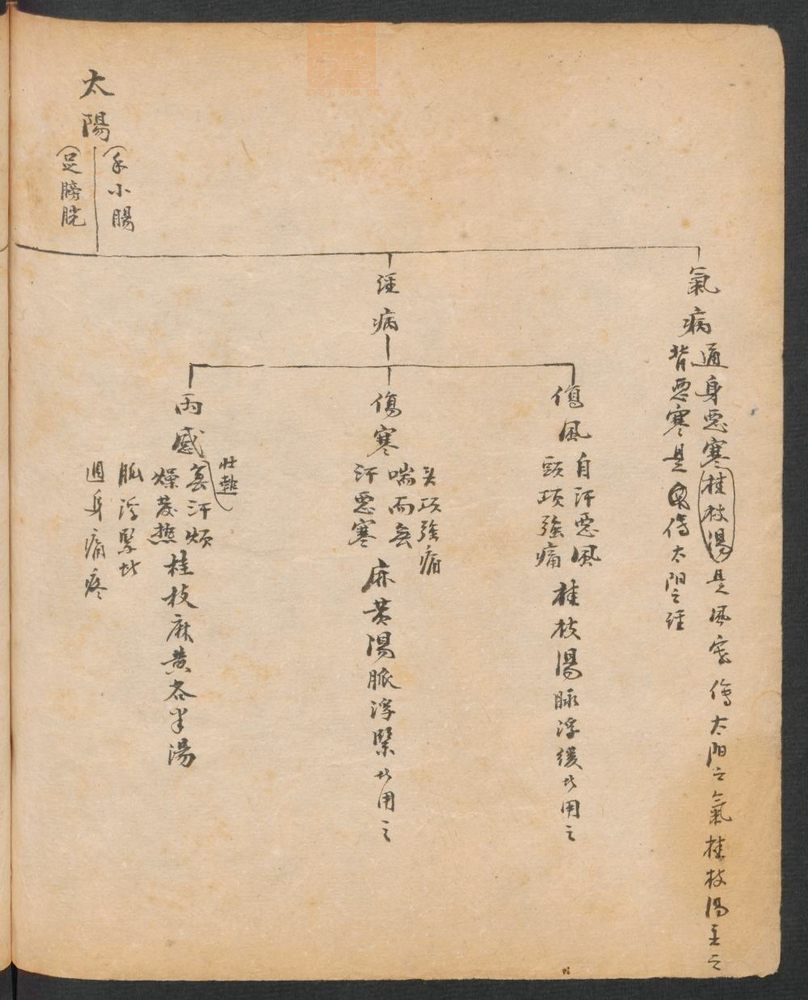 太陽
(手小腸
(足膀胱
氣病
通身惡寒桂枝湯是風寒傷太阳之氣桂枝湯主之
背惡寒是傷太阳之経
經病
傷風
自汗惡風
頭項強痛
桂枝湯脉浮緩者用之
傷寒
头項強痛
喘而無
汗惡寒
麻黃湯脈浮緊者用之
兩感
壯熱
無汗煩
燥發熱
脈浮緊者
週身痛疼
桂枝麻黃各半湯